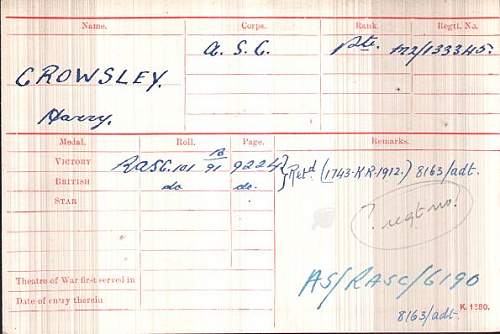 Name. Corps. Rank. Regtl. No.
A. S. C. Pte. M2/133345.
CROWSLEY.
Harry.
Medal. Roll. Page. Remarks.
VICTORY RASC. 101 B/91 9224 } Ret'd (1743-KR.1912.) 8163/adt.
BRITISH do do.
STAR
? regt no.
Theatre of War first served in
AS/RASC/6190
Date of entry therein
K. 1380.
8163/adt.